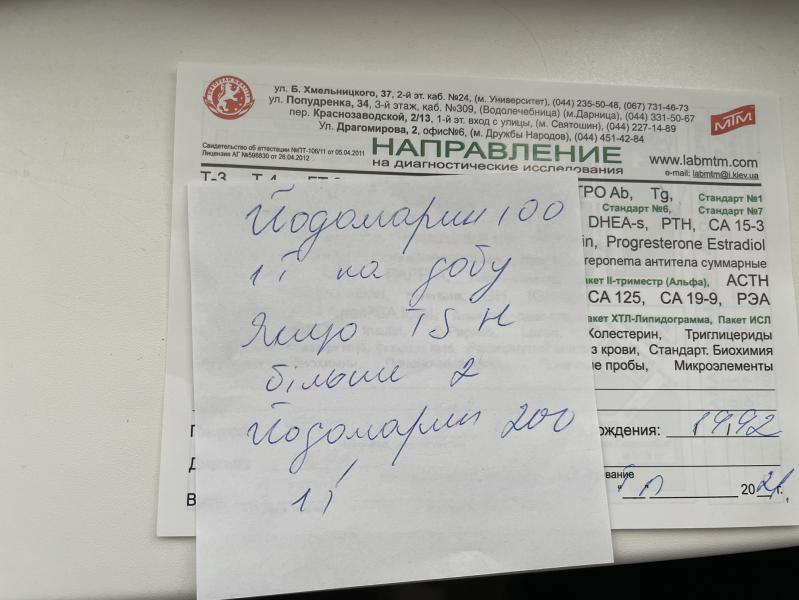 ул. Б. Хмельницкого, 37, 2-й эт. каб. №24, (м. Университет), (044) 235-50-48, (067) 731-46-73
ул. Попудренка, 34, 3-й этаж, каб. №309, (Водолечебница) (м.Дарница), (044) 331-50-67
пер. Краснозаводской, 2/13, 1-й эт. вход с улицы, (м. Святошин), (044) 227-14-89
Ул. Драгомирова, 2, офис№6, (м. Дружбы Народов), (044) 451-42-84
МТМ
Свидетельство об аттестации №ПТ-106/11 от 05.04.2011
Лицензия АГ №598830 от 26.04.2012
НАПРАВЛЕНИЕ
на диагностические исследования
www.labmtm.com
e-mail: labmtm@i.kiev.ua
Т-3, Т-4,
ТРО Ab, Tg, Стандарт №1
Стандарт №6, Стандарт №7
DHEA-s, PTH, CA 15-3
Progresterone Estradiol
антитела суммарные
II-триместр (Альфа), АСТН
СА 125, СА 19-9, РЭА
ХТЛ-Липидограмма, Пакет ИСЛ
Холестерин, Триглицериды
крови, Стандарт. Биохимия
пробы, Микроэлементы
Йодомарин 100
1т на добу
Якщо TSH
більше 2
Йодомарин 200
1т
рождения: 1992
20 21г.